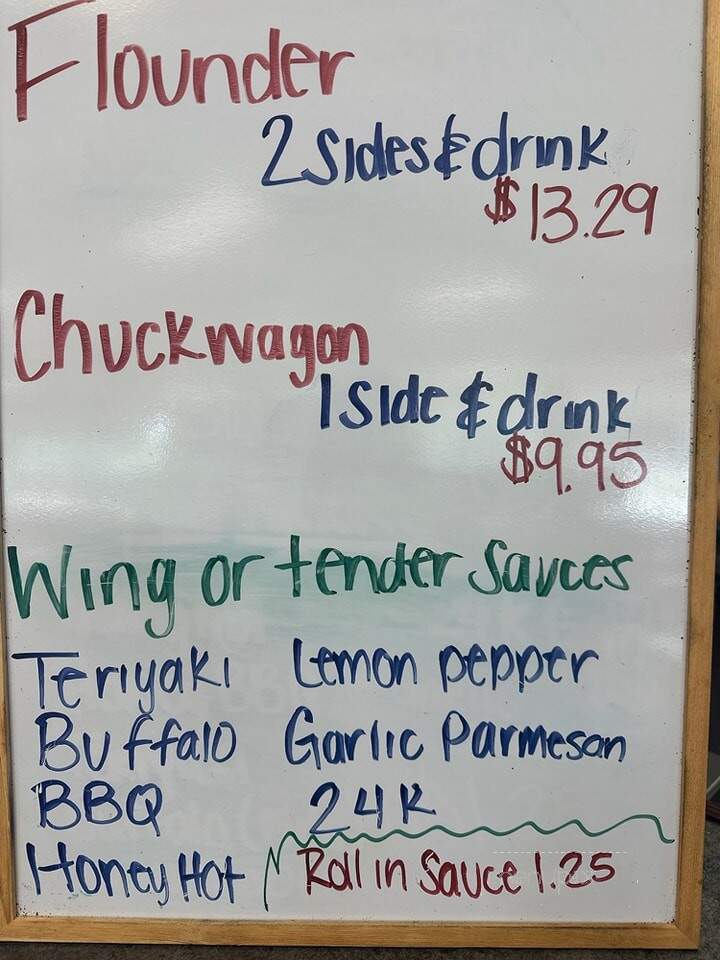 Flounder
2 Sides & drink
$13.29
Chuckwagon
1 Side & drink
$9.95
Wing or tender Sauces
Teriyaki Lemon pepper
Buffalo Garlic Parmesan
BBQ 24K
Honey Hot Roll in Sauce 1.25